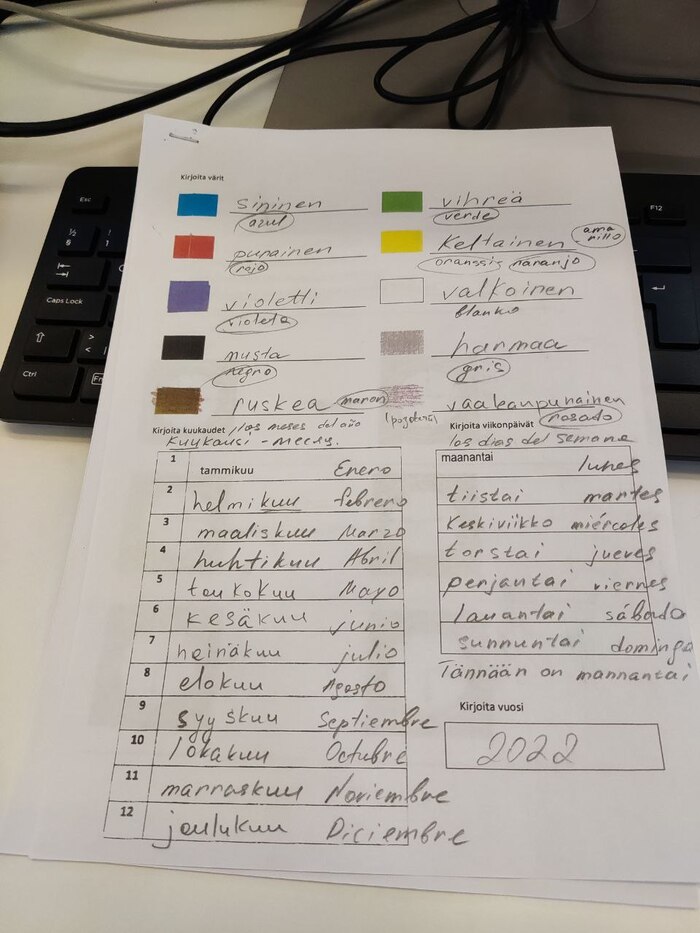 Kirjoita värit
sininen vihreä
azul verde
punainen Keltainen ama
rillo
rojo oranssi naranjo
violetti valkoinen
violeta blanko
musta harmaa
negro gris
ruskea maron vaaleanpunainen
rosado
Kirjoita kuukaudet los meses del año Kirjoita viikonpäivät
Kuukausi - месяц. los dias del semana
1 tammikuu Enero
2 helmikuu febrero
3 maaliskuu Marzo
4 huhtikuu Abril
5 toukokuu Mayo
6 kesäkuu junio
7 heinäkuu julio
8 elokuu Agosto
9 syyskuu Septiembre
10 lokakuu Octubre
11 marraskuu Noviembre
12 joulukuu Diciembre
maanantai lunes
tiistai martes
Keskiviikko miércoles
torstai jueves
perjantai viernes
lauantai sábado
sunnuntai domingo
Tännään on mannantai
Kirjoita vuosi
2022
Esc
Caps Lock
Ctrl
F12